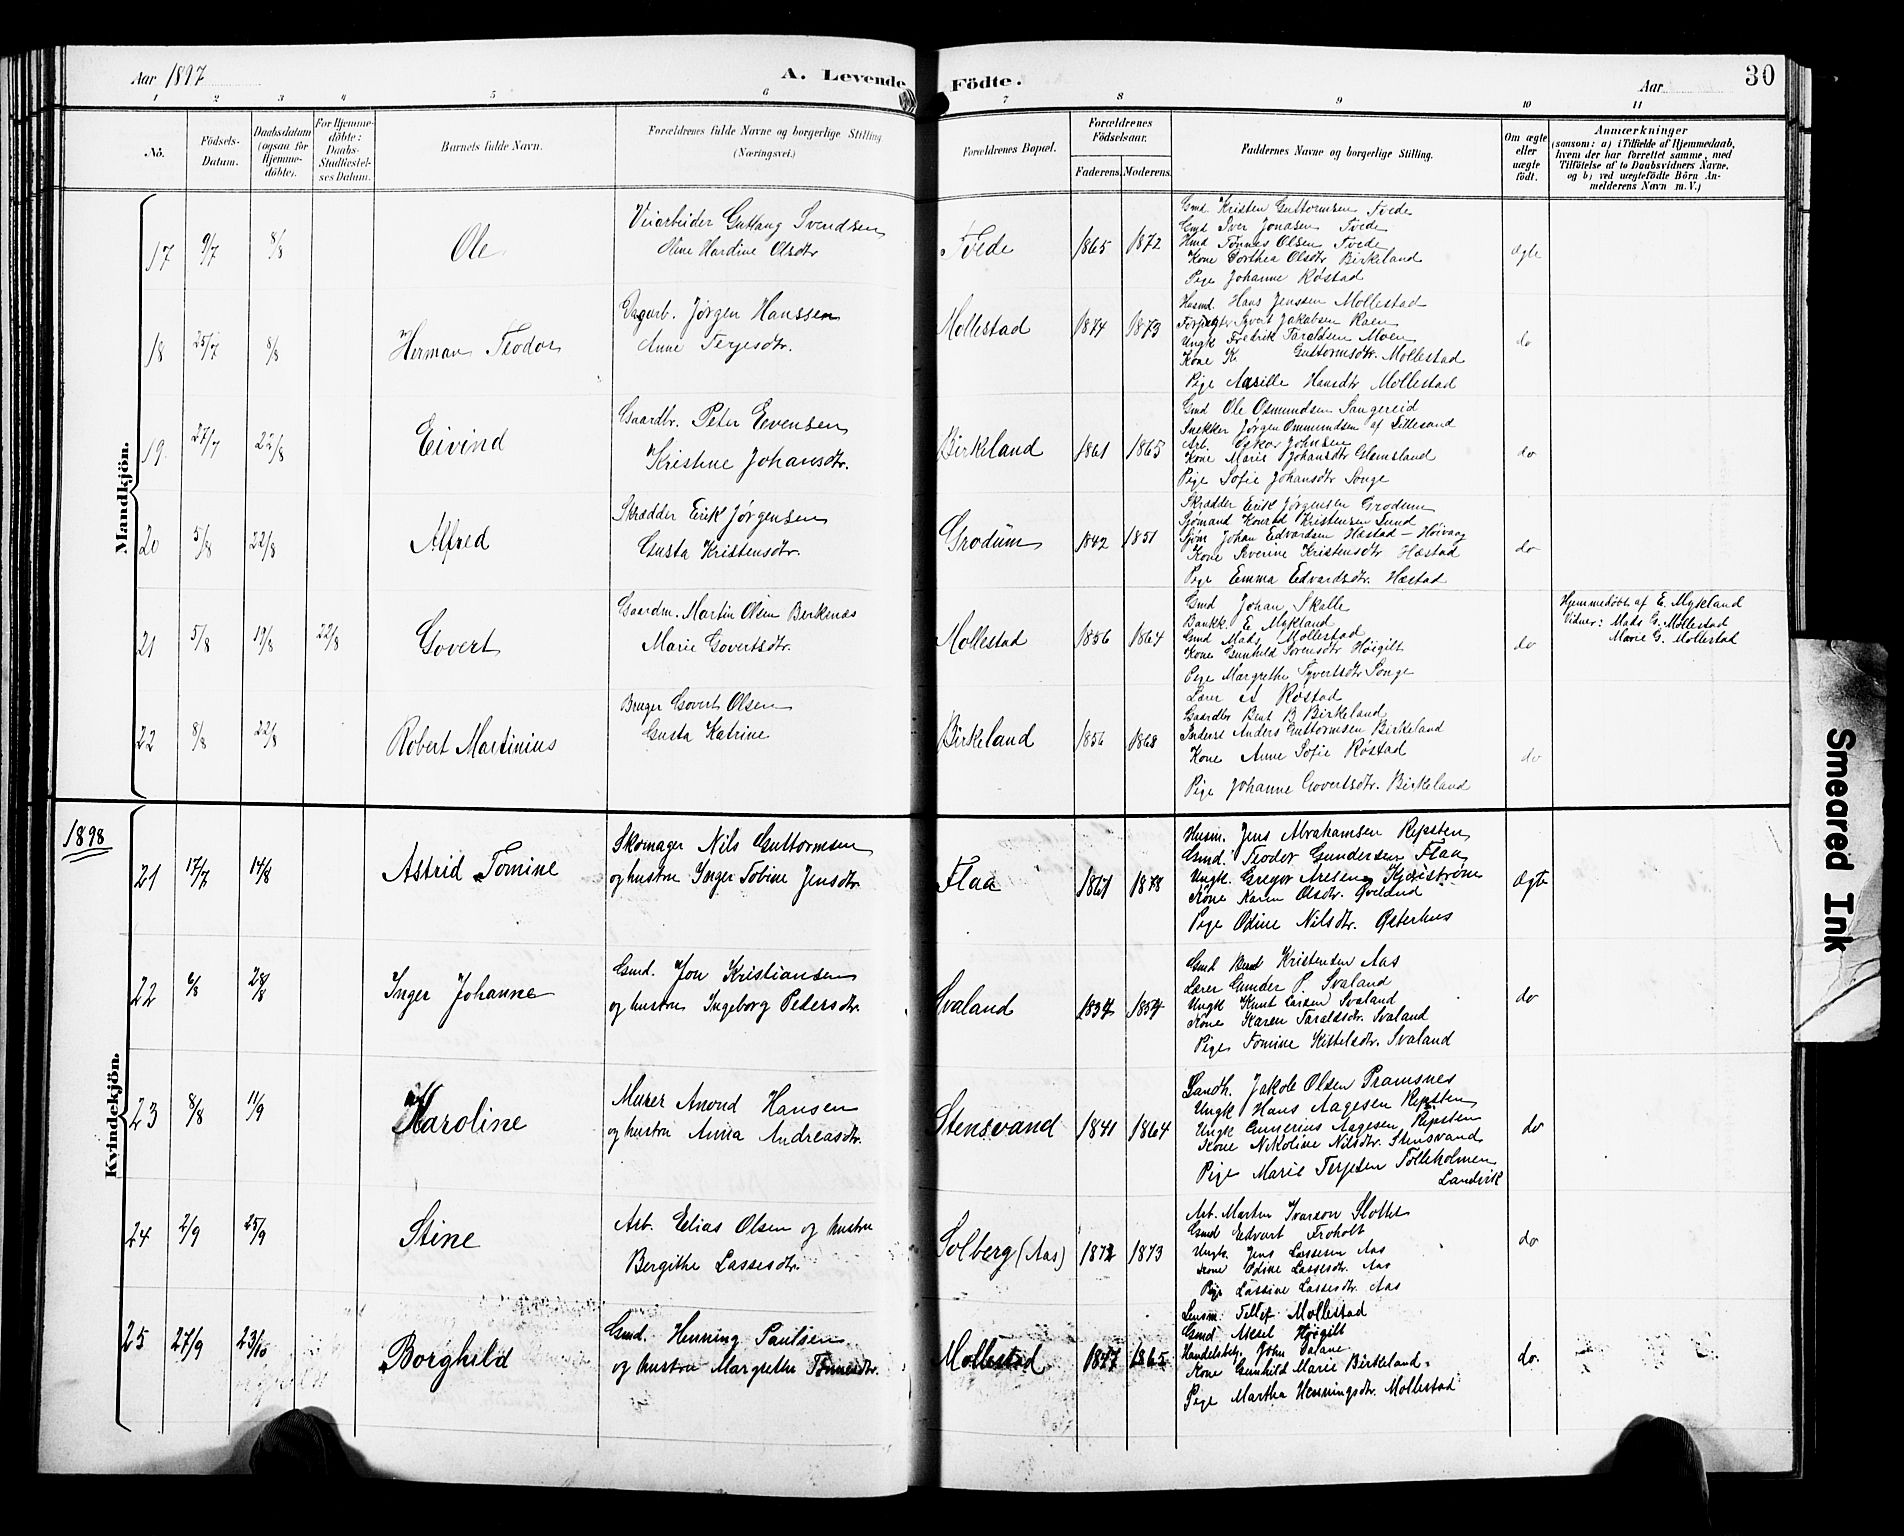 Aar 1897
A. Levende Födte.
Aar
30
1 2 3 4 5 6 7 8 9 10 11
No.
Födsels-Datum.
Daabsdatum (ogsaa for Hjemmedöbte).
For Hjemmedöbte: Daabs-Stadfæstelses Datum.
Barnets fulde Navn.
Forældrenes fulde Navne og borgerlige Stilling (Næringsvei.)
Forældrenes Bopæl.
Forældrenes Födselsaar.
Faderens. Moderens.
Faddernes Navne og borgerlige Stilling.
Om ægte eller uægte födt.
Anmærkninger
(saasom: a) i Tilfælde af Hjemmedaab, hvem der har forrettet samme, med Tilföielse af to Daabsvidners Navne, og b) ved uægtefödte Börn Anmelderens Navn m. V.)
Mandkjön.
17 9/7 8/8 Ole
Veiarbeider Guttang Svendsen
Oline Hardine Olsdtr
Tvede 1865 1872
Gmd Kristen Guttormsen Tvede
Gmd Iver Jonasen Tvede
Hmd Tønnes Olsen Tvede
Kone Dorthea Olsdtr Birkeland
Pige Johanne Røstad
Ægte
18 25/7 8/8 Herman Teodor
Dagarb. Jørgen Hanssen
Anne Terjesdtr.
Mollestad 1874 1873
Husmd. Hans Jenssen Mollestad
Forpagtr Syvert Jakobsen Roen
Ungk Fredrik Taraldsen Moen
Kone K. Guttormsdtr. Mollestad
Pige Aasille Hansdtr Mollestad
do
19 27/7 22/8 Eivind
Gaardbr. Peter Evensen
Kristine Johansdtr.
Birkeland 1861 1865
Gmd Ole Osmundsen Sangereid
Snekker Jørgen Ommundsen af Lillesand
Arb. Oskar Johnsen
Kone Marie Johansdtr Glamsland
Pige Sofie Johansdtr Songe
do
20 5/8 22/8 Alfred
Skrædder Erik Jørgensen
Gusta Kristensdtr.
Grodum 1842 1851
Skrædder Erik Jørgensen Grodum
Sjømand Konrad Kristensen Lund
Sjøm Johan Edvardsen Hæstad - Høivaag
Kone Severine Kristensdtr Hæstad
Pige Emma Edvardsdtr. Hæstad
do
21 5/8 19/8 22/8 Govert
Gaardm. Martin Olsen Birkenæs
Marie Govertsdtr.
Mollestad 1856 1864
Gmd Johan Skalle
Bankk. E. Mykland
Gmd Mads Mollestad
Kone Gunhild Sørensdtr Høigilt
Pige Margrethe Syvertsdtr Songe
do
Hjemmedøbt af E. Mykland
Vidner: Mads G. Mollestad
Marie G. Mollestad
22 8/8 22/8 Robert Martinius
Bruger Govert Olsen
Gusta Katrine
Birkeland 1856 1868
Lærer A Røstad
Gaardbr Bent B Birkeland
Inderst Anders Guttormsen Birkeland
Kone Anne Sofie Røstad
Pige Johanne Govertsdtr. Birkeland
do
1898
Kvindekjön.
21 17/7 14/8 Astrid Tomine
Skomager Nils Guttormsen
og hustru Inger Tobine Jensdtr
Flaa 1867 1878
Husm. Jens Abrahamsen Repsten
Gmd. Teodor Gundersen Flaa
Ungk. Gregor Aresen Kjeristrøm
Kone Karen Olsdtr. Øveland
Pige Odine Nilsdtr. Østerhus
Ægte
22 6/8 28/8 Inger Johanne
Gmd. Jon Kristiansen
og hustru Ingeborg Pedersdtr.
Svaland 1837 1857
Gmd Bernt Kristensen Aas
Lærer Gunder P. Svaland
Ungk Knut Larsen Svaland
Kone Karen Taraldsdtr. Svaland
Pige Tomine Kittelsdtr. Svaland
do
23 8/8 11/9 Karoline
Murer Anond Hansen
og hustru Anna Andreasdtr.
Stensvand 1841 1864
Landh. Jakob Olsen Pramsnes
Ungk Hans Aagesen Repsten
Ungk Gunerius Aagesen Repsten
Kone Nikoline Nilsdtr. Stensvand
Pige Marie Terjesen Tolleholmen
Landvik
do
24 2/9 25/9 Stine
Arb. Elias Olsen og hustru
Bergithe Lassesdtr.
Solberg (Aas) 1872 1873
Arb. Martin Ivarson Slotte
Gmd Edvart Froholt
Ungk. Jens Lassesen Aas
Kone Odine Lassesdtr. Aas
Pige Lassine Lassesdtr. Aas
do
25 27/9 23/10 Borghild
Gmd. Henning Paulsen
og hustru Margrethe Tønnesdtr.
Mollestad 1847 1865
Lensm. Tellef Mollestad
Gmd Aksel Høigilt
Handelsbetj. John Dalane
Kone Gunhild Marie Birkeland
Pige Martha Henningsdtr. Mollestad
do.
Smeared Ink